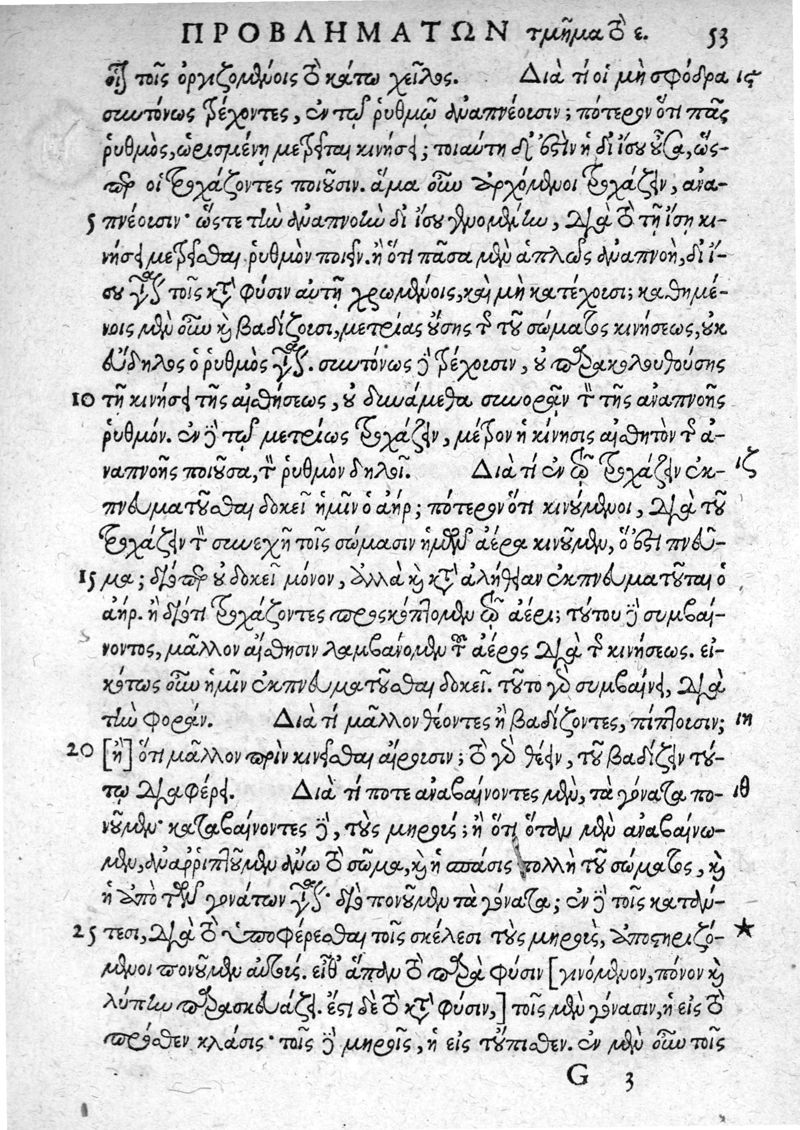 ΠΡΟΒΛΗΜΑΤΩΝ τμῆμα τὸ ε. 53
ἐπὶ τοῖς ὀργιζομένοις τὸ κάτω χεῖλος. Διὰ τί οἱ μὴ σφόδρα ις
συντόνως τρέχοντες, ἐν τῷ ῥυθμῷ ἀναπνέουσιν; πότερον ὅτι πᾶς
ῥυθμὸς, ὡρισμένῃ μετρεῖται κινήσει; τοιαύτη δ' ἐστὶν ἡ δι' ἴσου οὖσα, ὥς-
περ οἱ τροχάζοντες ποιοῦσιν. ἅμα οὖν ἀρχόμενοι τροχάζειν, ἀνα-
5 πνέουσιν· ὥστε τὴν ἀναπνοὴν δι' ἴσου γινομένην, διὰ τὸ τῇ ἴσῃ κι-
νήσει μετρεῖσθαι, ῥυθμὸν ποιεῖν. ἢ ὅτι πᾶσα μὲν ἁπλῶς ἀναπνοὴ, δι' ἴ-
σου γίνεται τοῖς κατὰ φύσιν αὐτῇ χρωμένοις, καὶ μὴ κατέχουσι; καθημέ-
νοις μὲν οὖν καὶ βαδίζουσι, μετρίας οὔσης τῆς τοῦ σώματος κινήσεως, οὐκ
εὔδηλος ὁ ῥυθμὸς γίνεται. συντόνως δὲ τρέχουσιν, οὐ παρακολουθούσης
10 τῇ κινήσει τῆς αἰσθήσεως, οὐ δυνάμεθα συνορᾶν τὸν τῆς ἀναπνοῆς
ῥυθμόν. ἐν δὲ τῷ μετρίως τροχάζειν, μέτρον ἡ κίνησις αἰσθητὸν τῆς ἀ-
ναπνοῆς ποιοῦσα, τὸν ῥυθμὸν δηλοῖ. Διὰ τί ἐν τῷ τροχάζειν ἐκ- ιζ
πνευματοῦσθαι δοκεῖ ἡμῖν ὁ ἀήρ; πότερον ὅτι κινούμενοι, διὰ τοῦ
τροχάζειν τὸν συνεχῆ τοῖς σώμασιν ἡμῶν ἀέρα κινοῦμεν, ὅ ἐστι πνεῦ-
15 μα; διόπερ οὐ δοκεῖ μόνον, ἀλλὰ καὶ κατ' ἀλήθειαν ἐκπνευματοῦται ὁ
ἀήρ. ἢ διότι τροχάζοντες προςκόπτομεν τῷ ἀέρι; τούτου δὲ συμβαί-
νοντος, μᾶλλον αἴσθησιν λαμβάνομεν τοῦ ἀέρος διὰ τῆς κινήσεως. εἰ-
κότως οὖν ἡμῖν ἐκπνευματοῦσθαι δοκεῖ. τοῦτο γὰρ συμβαίνει, διὰ
τὴν φοράν. Διὰ τί μᾶλλον θέοντες ἢ βαδίζοντες, πίπτουσιν; ιη
20 [ἢ] ὅτι μᾶλλον πρὶν κινεῖσθαι αἴρουσιν; τὸ γὰρ θέειν, τοῦ βαδίζειν τού-
τῳ διαφέρει. Διὰ τί ποτε ἀναβαίνοντες μὲν, τὰ γόνατα πο- ιθ
νοῦμεν· καταβαίνοντες δὲ, τοὺς μηρούς; ἢ ὅτι ὅταν μὲν ἀναβαίνω-
μεν, ἀναρριπτοῦμεν ἄνω τὸ σῶμα, καὶ ἡ σπάσις πολλὴ τοῦ σώματος, καὶ
ἡ ἀπὸ τῶν γονάτων γίνεται· διὸ πονοῦμεν τὰ γόνατα; ἐν δὲ τοῖς κατάν-
25 τεσι, διὰ τὸ ὑποφέρεσθαι τοῖς σκέλεσι τοὺς μηροὺς, ἀποστηριζό- ★
μενοι πονοῦμεν αὐτούς. εἶθ' ἅπαν τὸ παρὰ φύσιν [γινόμενον, πόνον καὶ
λύπην παρασκευάζει. ἔστι δὲ τὸ κατὰ φύσιν,] τοῖς μὲν γόνασιν, ἡ εἰς τὸ
πρόσθεν κλάσις· τοῖς δὲ μηροῖς, ἡ εἰς τοὔπισθεν. ἐν μὲν οὖν τοῖς
G 3